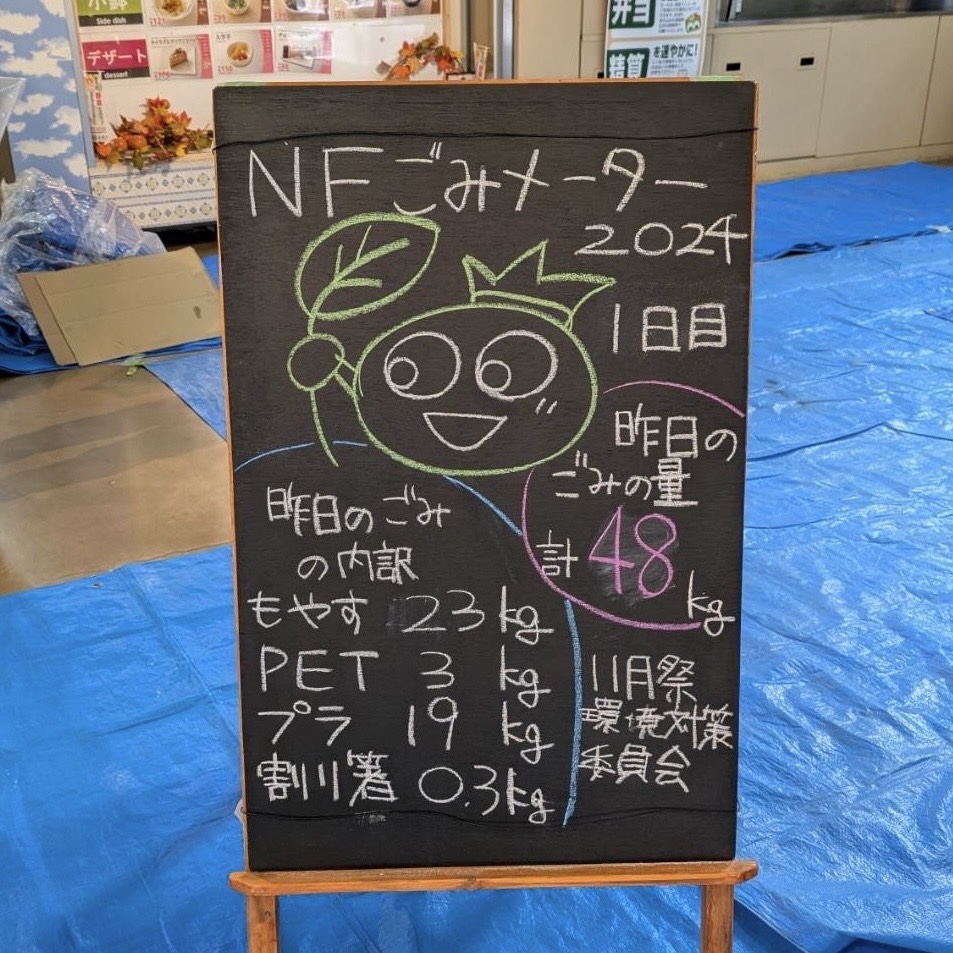 小鉢
Side dish
デザート
dessert
弁当
精算を速やかに!
NFごみメーター
2024
1日目
昨日の
ごみの量
計48
kg
昨日のごみ
の内訳
もやす 23 kg
PET 3 kg
プラ 19 kg
割り箸 0.3kg
11月祭
環境対策
委員会